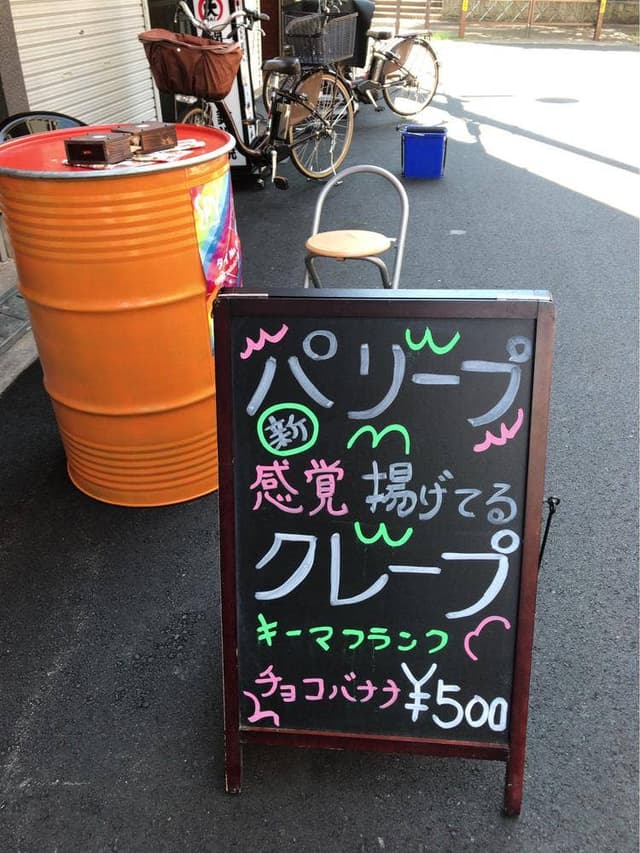 パリープ
新
感覚 揚げてる
クレープ
キーマフランク
チョコバナナ ¥500